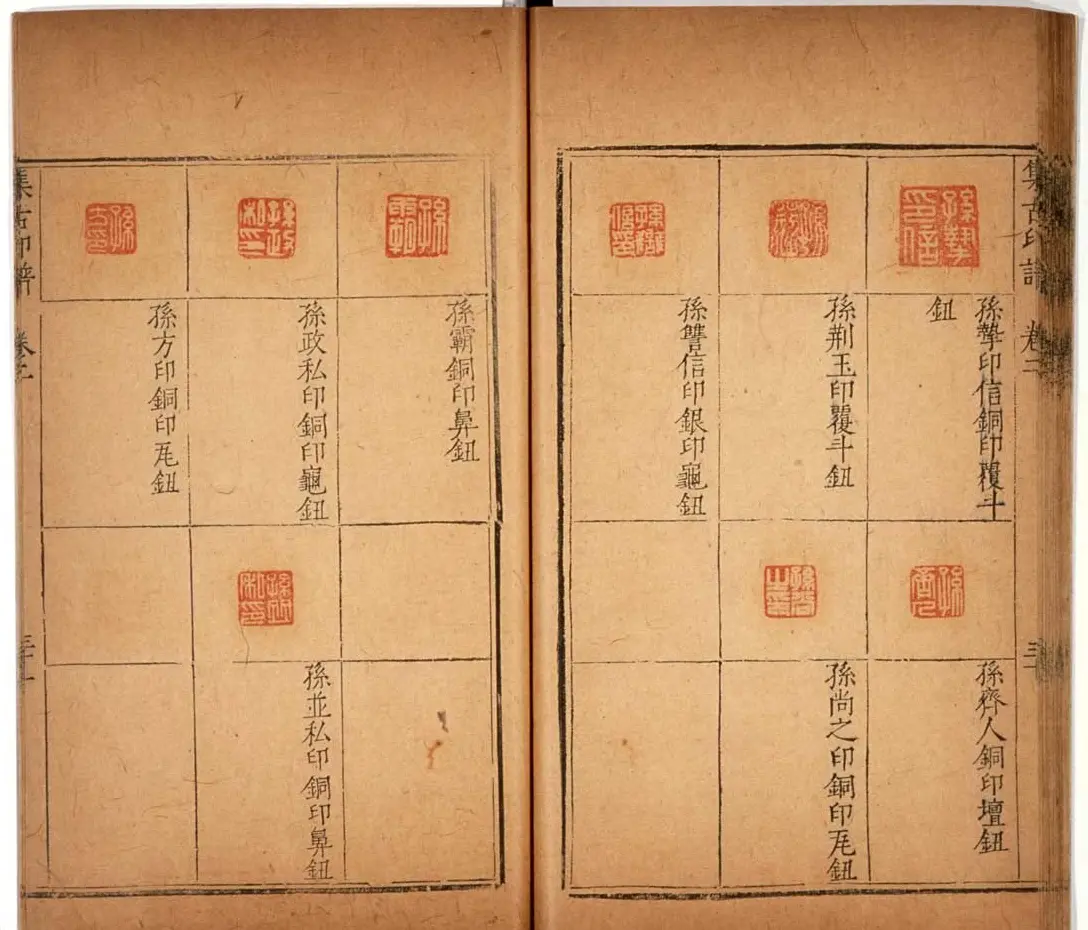 集古印譜 卷二
孫摯印信銅印覆斗
鈕
孫荆玉印覆斗鈕
孫讐信印銀印龜鈕
孫齊人銅印壇鈕
孫尚之印銅印瓦鈕
孫霸銅印鼻鈕
孫政私印銅印龜鈕
孫方印銅印瓦鈕
孫並私印銅印鼻鈕
集古印譜 卷二